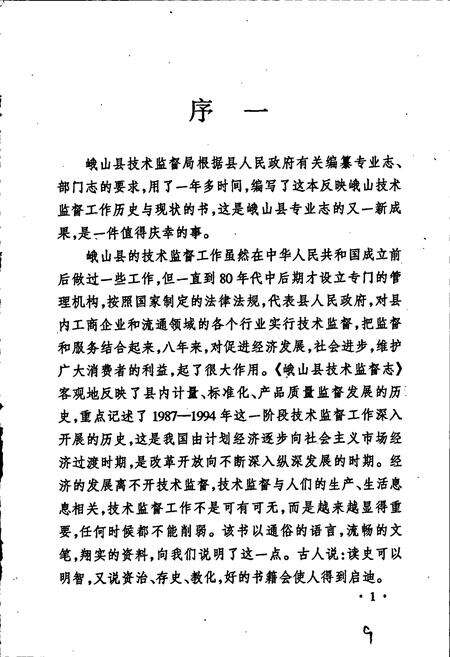 序 一
峨山县技术监督局根据县人民政府有关编纂专业志、
部门志的要求,用了一年多时间,编写了这本反映峨山技术
监督工作历史与现状的书,这是峨山县专业志的又一新成
果,是一件值得庆幸的事。
峨山县的技术监督工作虽然在中华人民共和国成立前
后做过一些工作,但一直到80年代中后期才设立专门的管
理机构,按照国家制定的法律法规,代表县人民政府,对县
内工商企业和流通领域的各个行业实行技术监督,把监督
和服务结合起来,八年来,对促进经济发展,社会进步,维护
广大消费者的利益,起了很大作用。《峨山县技术监督志》
客观地反映了县内计量、标准化、产品质量监督发展的历
史,重点记述了1987—1994年这一阶段技术监督工作深入
开展的历史,这是我国由计划经济逐步向社会主义市场经
济过渡时期,是改革开放向不断深入纵深发展的时期。经
济的发展离不开技术监督,技术监督与人们的生产、生活息
息相关,技术监督工作不是可有可无,而是越来越显得重
要,任何时候都不能削弱。该书以通俗的语言,流畅的文
笔,翔实的资料,向我们说明了这一点。古人说:读史可以
明智,又说资治、存史、教化,好的书籍会使人得到启迪。
·1·
9